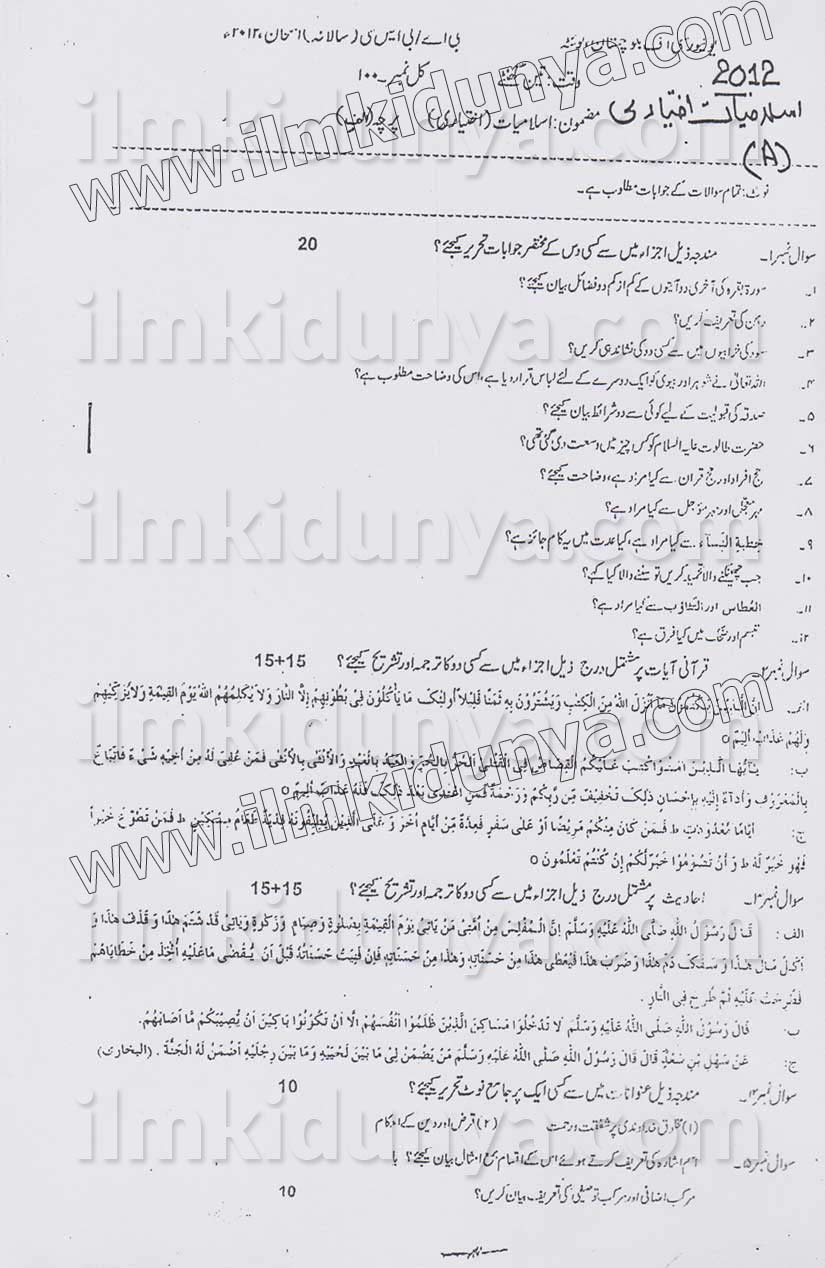 یونیورسٹی آف بلوچستان، کوئٹہ بی اے/بی ایس سی (سالانہ) امتحان، ۲۰۱۲ء
2012
وقت: تین گھنٹے کل نمبر۔ ۱۰۰
اسلامیات اختیاری
مضمون: اسلامیات (اختیاری) پرچہ (الف)
(A)
نوٹ: تمام سوالات کے جوابات مطلوب ہے۔
سوال نمبر ۱۔ مندجہ ذیل اجزاء میں سے کسی دس کے مختصر جوابات تحریر کیجئے؟ 20
۱۔ سورۃ بقرہ کی آخری دو آیتوں کے کم از کم دو فضائل بیان کیجئے؟
۲۔ رہن کی تعریف کریں؟
۳۔ سود کی خرابیوں میں سے کسی دو کی نشاندہی کریں؟
۴۔ اللہ تعالیٰ نے شوہر اور بیوی کو ایک دوسرے کے لئے لباس قرار دیا ہے، اس کی وضاحت مطلوب ہے؟
۵۔ صدقہ کی قبولیت کے لیے کوئی سے دو شرائط بیان کیجئے؟
۶۔ حضرت طالوت علیہ السلام کو کس چیز میں وسعت دی گئی تھی؟
۷۔ حج افراد اور حج قران سے کیا مراد ہے، وضاحت کیجئے؟
۸۔ مہر معجل اور مہر مؤجل سے کیا مراد ہے؟
۹۔ خِطبۃ النِسآء سے کیا مراد ہے، کیا عدت میں یہ کام جائز ہے؟
۱۰۔ جب چھینکنے والا تحمید کریں تو سننے والا کیا کہے؟
۱۱۔ العُطاس اور التثاؤب سے کیا مراد ہے؟
۱۲۔ تبسم اور ضحک میں کیا فرق ہے؟
سوال نمبر ۲۔ قرآنی آیات پر مشتمل درج ذیل اجزاء میں سے کسی دو کا ترجمہ اور تشریح کیجئے؟ 15+15
الف۔ اِنَّ الَّذِیْنَ یَکْتُمُوْنَ مَا اَنْزَلَ اللهُ مِنَ الْکِتٰبِ وَیَشْتَرُوْنَ بِهٖ ثَمَنًا قَلِیْلاً اُولٰئِکَ مَا یَاْکُلُوْنَ فِیْ بُطُوْنِهِمْ اِلاَّ النَّارَ وَلاَ یُکَلِّمُهُمُ اللهُ یَوْمَ الْقِیٰمَةِ وَلاَ یُزَکِّیْهِمْ
وَلَهُمْ عَذَابٌ اَلِیْمٌ o
ب: یٰاَیُّهَا الَّذِیْنَ اٰمَنُوْا کُتِبَ عَلَیْکُمُ الْقِصَاصُ فِی الْقَتْلٰی اَلْحُرُّ بِالْحُرِّ وَالْعَبْدُ بِالْعَبْدِ وَالْاُنْثٰی بِالْاُنْثٰی فَمَنْ عُفِیَ لَهٗ مِنْ اَخِیْهِ شَیْءٌ فَاتِّبَاعٌ
بِالْمَعْرُوْفِ وَاَدَآءٌ اِلَیْهِ بِاِحْسَانٍ ذٰلِکَ تَخْفِیْفٌ مِّنْ رَّبِّکُمْ وَرَحْمَةٌ فَمَنِ اعْتَدٰی بَعْدَ ذٰلِکَ فَلَهٗ عَذَابٌ اَلِیْمٌ o
ج: اَیَّامًا مَّعْدُوْدٰتٍ ط فَمَنْ کَانَ مِنْکُمْ مَرِیْضًا اَوْ عَلٰی سَفَرٍ فَعِدَّةٌ مِّنْ اَیَّامٍ اُخَرَ وَ عَلَی الَّذِیْنَ یُطِیْقُوْنَهٗ فِدْیَةٌ طَعَامُ مِسْکِیْنٍ ط فَمَنْ تَطَوَّعَ خَیْراً
فَهُوَ خَیْرٌ لَهٗ ط وَ اَنْ تَصُوْمُوْا خَیْرٌ لَّکُمْ اِنْ کُنْتُمْ تَعْلَمُوْنَ o
سوال نمبر ۳۔ احادیث پر مشتمل درج ذیل اجزاء میں سے کسی دو کا ترجمہ اور تشریح کیجئے؟ 15+15
الف: قَالَ رَسُوْلُ اللهِ صَلَّی اللهُ عَلَیْهِ وَسَلَّمَ اِنَّ الْمُفْلِسَ مِنْ اُمَّتِیْ مَنْ یَاتِیْ یَوْمَ الْقِیٰمَةِ بِصَلوٰةٍ وَ صِیَامٍ وَ زَکٰوةٍ وَیَاتِیْ قَدْ شَتَمَ هٰذَا وَ قَذَفَ هٰذَا وَ
اَکَلَ مَالَ هٰذَا وَ سَفَکَ دَمَ هٰذَا وَ ضَرَبَ هٰذَا فَیُعْطٰی هٰذَا مِنْ حَسَنَاتِهٖ وَهٰذَا مِنْ حَسَنَاتِهٖ فَاِنْ فَنِیَتْ حَسَنَاتُهٗ قَبْلَ اَنْ یُّقْضٰی مَا عَلَیْهِ اُخِذَ مِنْ خَطَایَاهُمْ
فَطُرِحَتْ عَلَیْهِ ثُمَّ طُرِحَ فِی النَّارِ۔
ب: قَالَ رَسُوْلُ اللهِ صَلَّی اللهُ عَلَیْهِ وَسَلَّمَ لاَ تَدْخُلُوْا مَسَاکِنَ الَّذِیْنَ ظَلَمُوْا اَنْفُسَهُمْ اِلاَّ اَنْ تَکُوْنُوْا بَاکِیْنَ اَنْ یُّصِیْبَکُمْ مَّا اَصَابَهُمْ.
ج: عَنْ سَهْلِ بْنِ سَعْدٍ قَالَ قَالَ رَسُوْلُ اللهِ صَلَّی اللهُ عَلَیْهِ وَسَلَّمَ مَنْ یَّضْمَنْ لِیْ مَا بَیْنَ لَحْیَیْهِ وَمَا بَیْنَ رِجْلَیْهِ اَضْمَنْ لَهُ الْجَنَّةَ. (البخاری)
سوال نمبر ۴۔ مندجہ ذیل عنوانات میں سے کسی ایک پر جامع نوٹ تحریر کیجئے؟ 10
(۱) مخلوق خداوندی پر شفقت و رحمت (۲) قرض اور دین کے احکام
سوال نمبر ۵۔ اسم اشارہ کی تعریف کرتے ہوئے اس کے اقسام بمع امثال بیان کیجئے؟ یا
مرکب اضافی اور مرکب توصیفی کی تعریف بیان کریں؟ 10
www.ilmkidunya.com
ilmkidunya.com
ilmkidunya.com
ilmkidunya.com
www.ilmkidunya.com
ilmkidunya.com
ilmkidunya.com
ilmkidunya.com